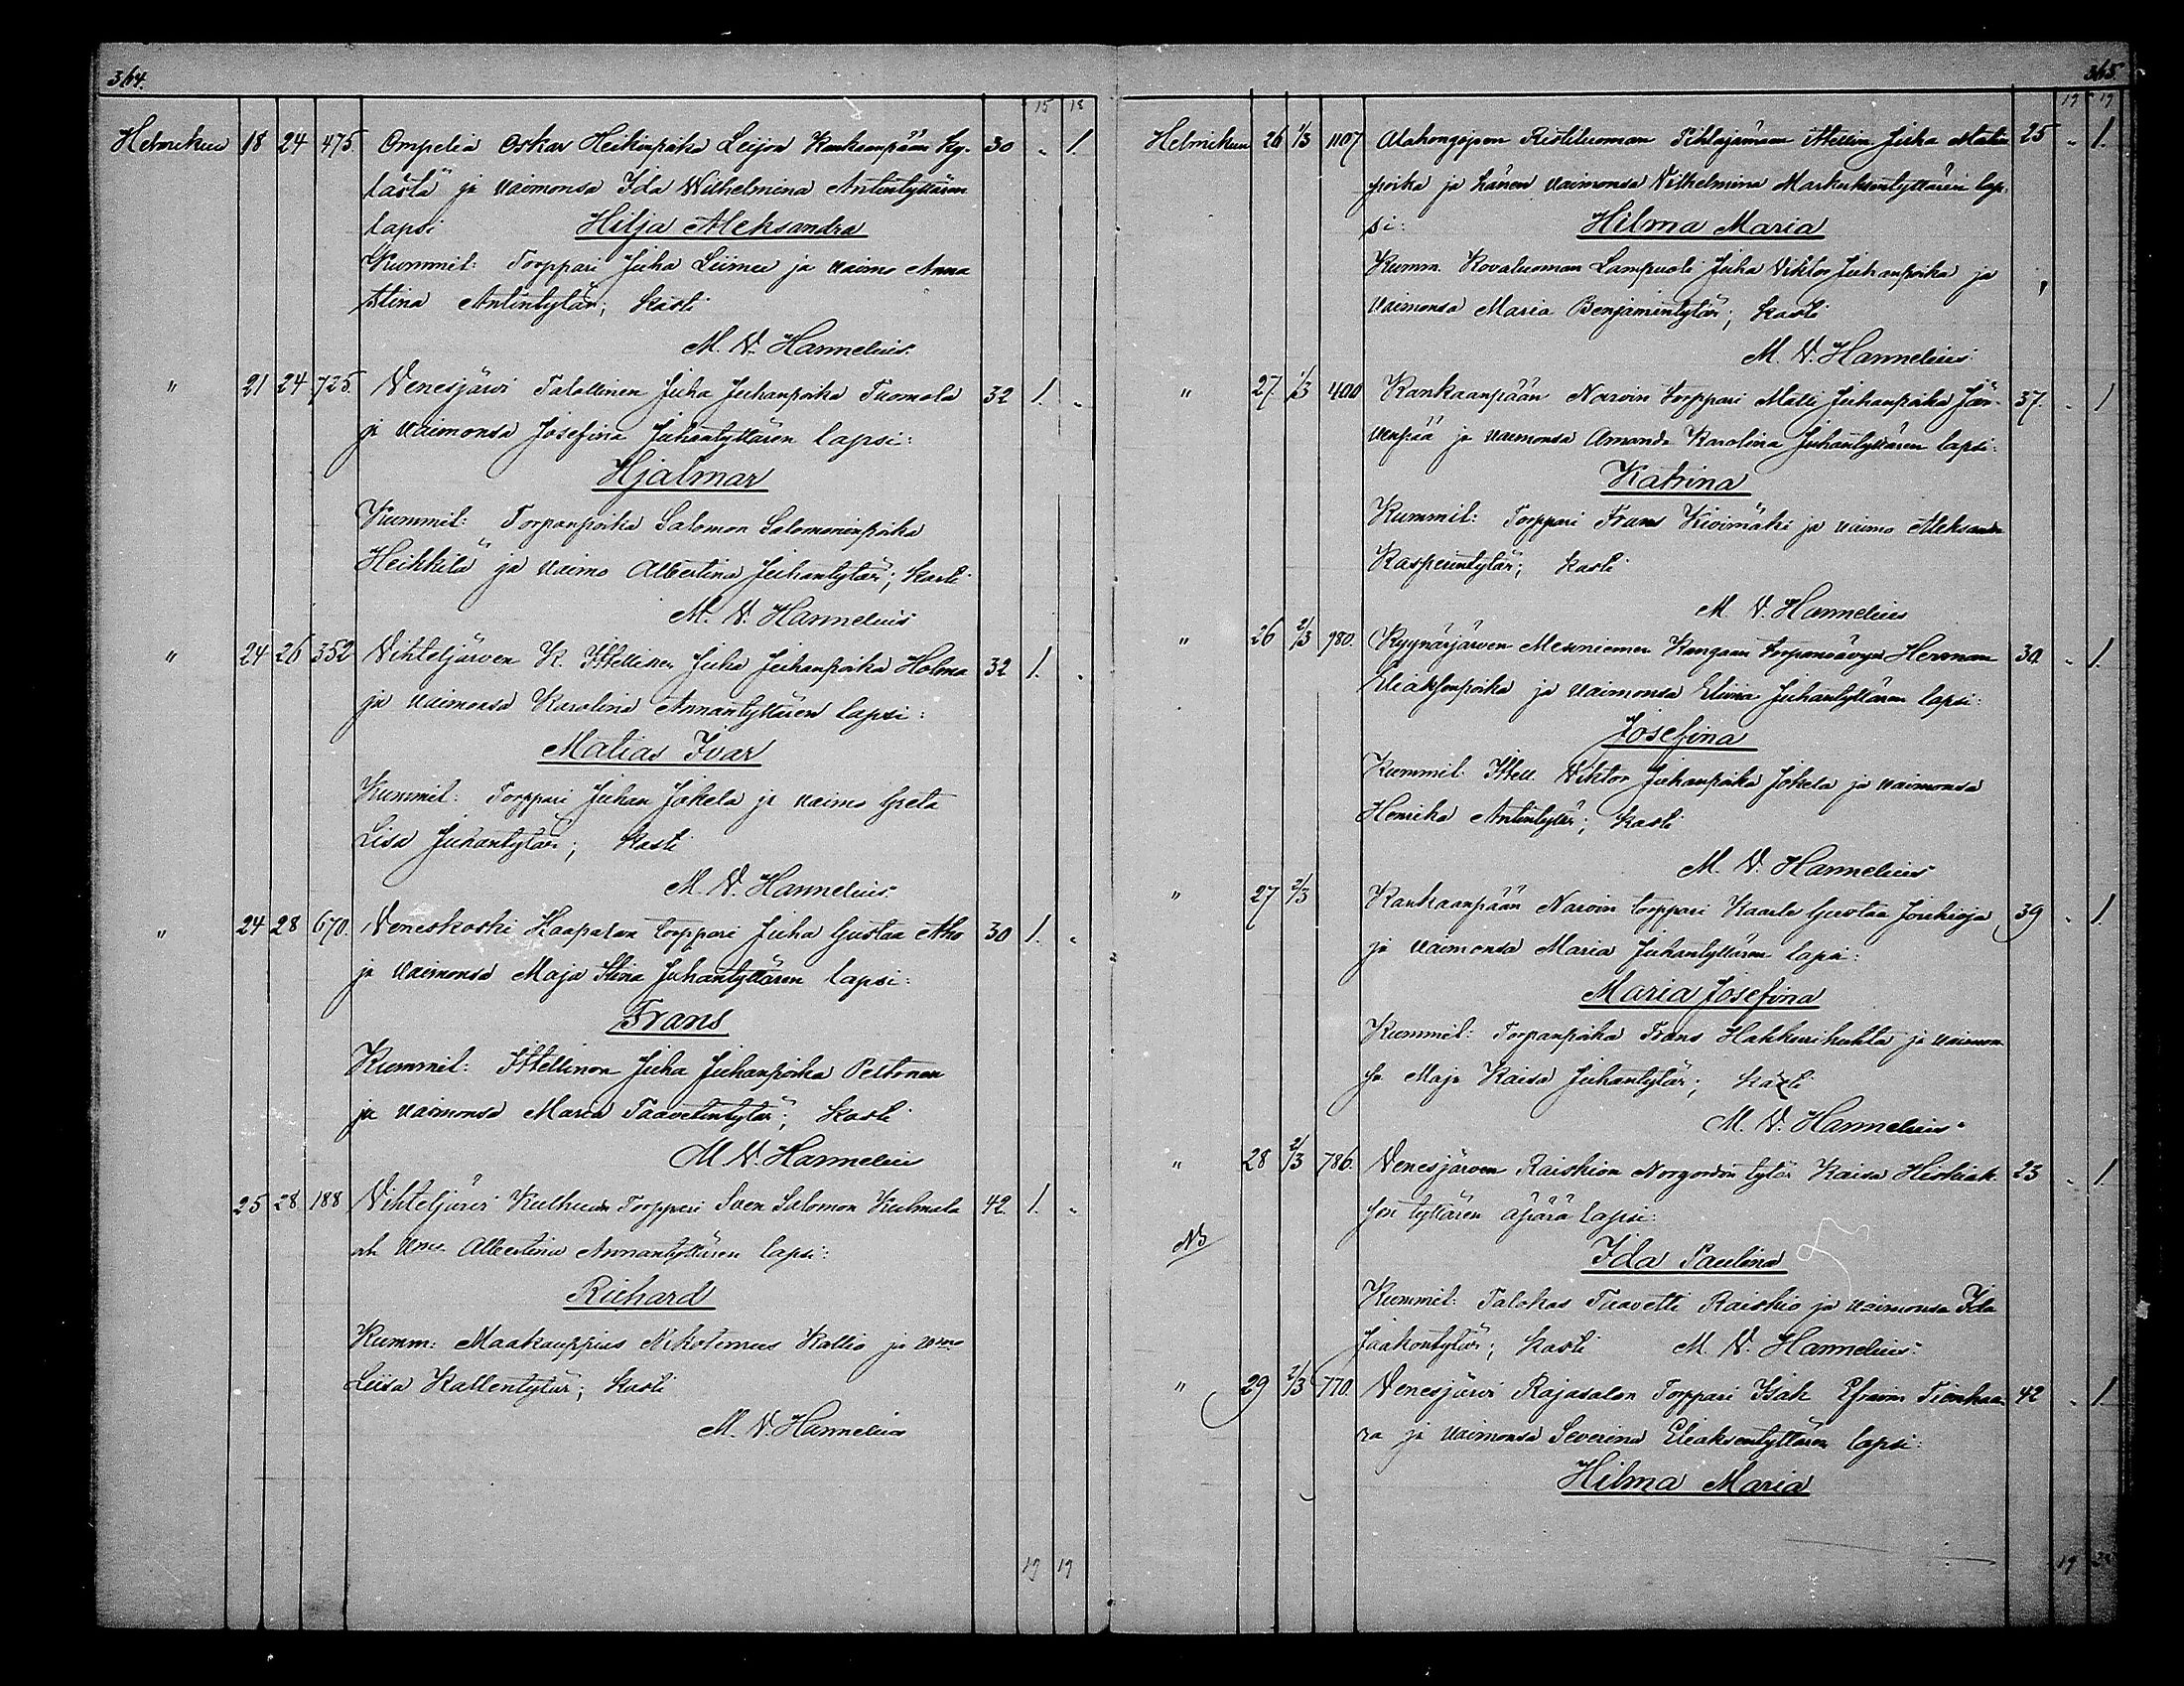 364.
15 18
Helmikuu 18 24 475. Ompelia Oskar Heikinpoika Leijon Kankaanpään Ky- 30 „ 1.
lästä ja vaimonsa Ida Wilhelmina Antintyttären
lapsi Hilja Aleksandra
Kummit: Torppari Juha Leimu ja vaimo Anna
Stina Antintytär; kasti
M. V. Hannelius.
" 21 24 725. Venesjärvi Talollinen Juha Juhanpoika Tuomola 32 1. „
ja vaimonsa Josefina Juhantyttären lapsi:
Hjalmar
Kummit: Torpanpoika Salomon Salomoninpoika
Heikkilä ja vaimo Albertina Juhantytär; kasti
M. V. Hannelius
" 24 26 352 Vihteljärven K. Itsellinen Juha Juhanpoika Holma 32 1. „
ja vaimonsa Karolina Annantyttären lapsi:
Matias Ivar
Kummit: Torppari Juhan Jokela ja vaimo Greta
Lisa Juhantytär; kasti
M. V. Hannelius.
" 24 28 670. Veneskoski Haapalan torppari Juha Gustaa Aho 30 1. „
ja vaimonsa Maja Stina Juhantyttären lapsi:
Frans
Kummit: Itsellinen Juha Juhanpoika Peltonen
ja vaimonsa Maria Taavetintytär; kasti
M. V. Hannelius
25 28 188 Vihteljärvi Kulhuan Torppari Sven Salomon Kulmala 42. 1. „
Albertina Annantyttären lapsi:
Richard
Kumm: Maakauppias Nikotemus Kallio ja vmo
Liisa Kallentytär; kasti
M. V. Hannelius
19 19
365.
19 19
Helmikuun 26 1/3 1107 Alahongojoen Ristiluoman Pihlajamäen Itsellin. Juha Matin 25 „ 1.
poika ja hänen vaimonsa Vilhelmina Markuksentyttären lap-
si: Hilma Maria
Kumm. Kovaluoman Lampuoti Juha Viktor Juhanpoika ja
vaimonsa Maria Benjamintytär; kasti
M. V. Hannelius
" 27. 1/3 400 Kankaanpään Narvin torppari Matti Juhanpoika Jär- 37. „ 1
venpää ja vaimonsa Amanda Karolina Juhantyttären lapsi:
Katrina
Kummit: Torppari Frans Kivimäki ja vaimo Aleksandra
Kasperintytär; kasti
M. V. Hannelius
" 26 2/3 980. Kyynärjärven Mesiniemen Kangaan torpansävyri Herman 30. „ 1.
Eliaksenpoika ja vaimonsa Elviira Juhantyttären lapsi:
Josefina
Kummit: Itsell. Viktor Juhanpoika Jokela ja vaimonsa
Henrika Antintytär; kasti
M. V. Hannelius
" 27 2/3 Kankaanpään Narvin torppari Kaarle Gustaa Jouhioja 39 „ 1.
ja vaimonsa Maria Juhantyttären lapsi:
Maria Josefina
Kummit: Torpanpoika Frans Hakkurikuhta ja vaimon-
sa Maja Kaisa Juhantytär; kasti
M. V. Hannelius.
" 28 2/3 786. Venesjärven Raiskion tytär Kaisa Hiskiak- 23 „ 1.
sen tyttären äpärä lapsi:
NB
Ida Paulina
Kummit: Talokas Taavetti Raiskio ja vaimonsa Ida
Jaakontytär; kasti M. V. Hannelius.
" 29 2/3 770. Venesjärvi Rajasalon Torppari Isak Efraim Tienhaa- 42 „ 1.
ra ja vaimonsa Severina Eliaksentyttären lapsi:
Hilma Maria
19